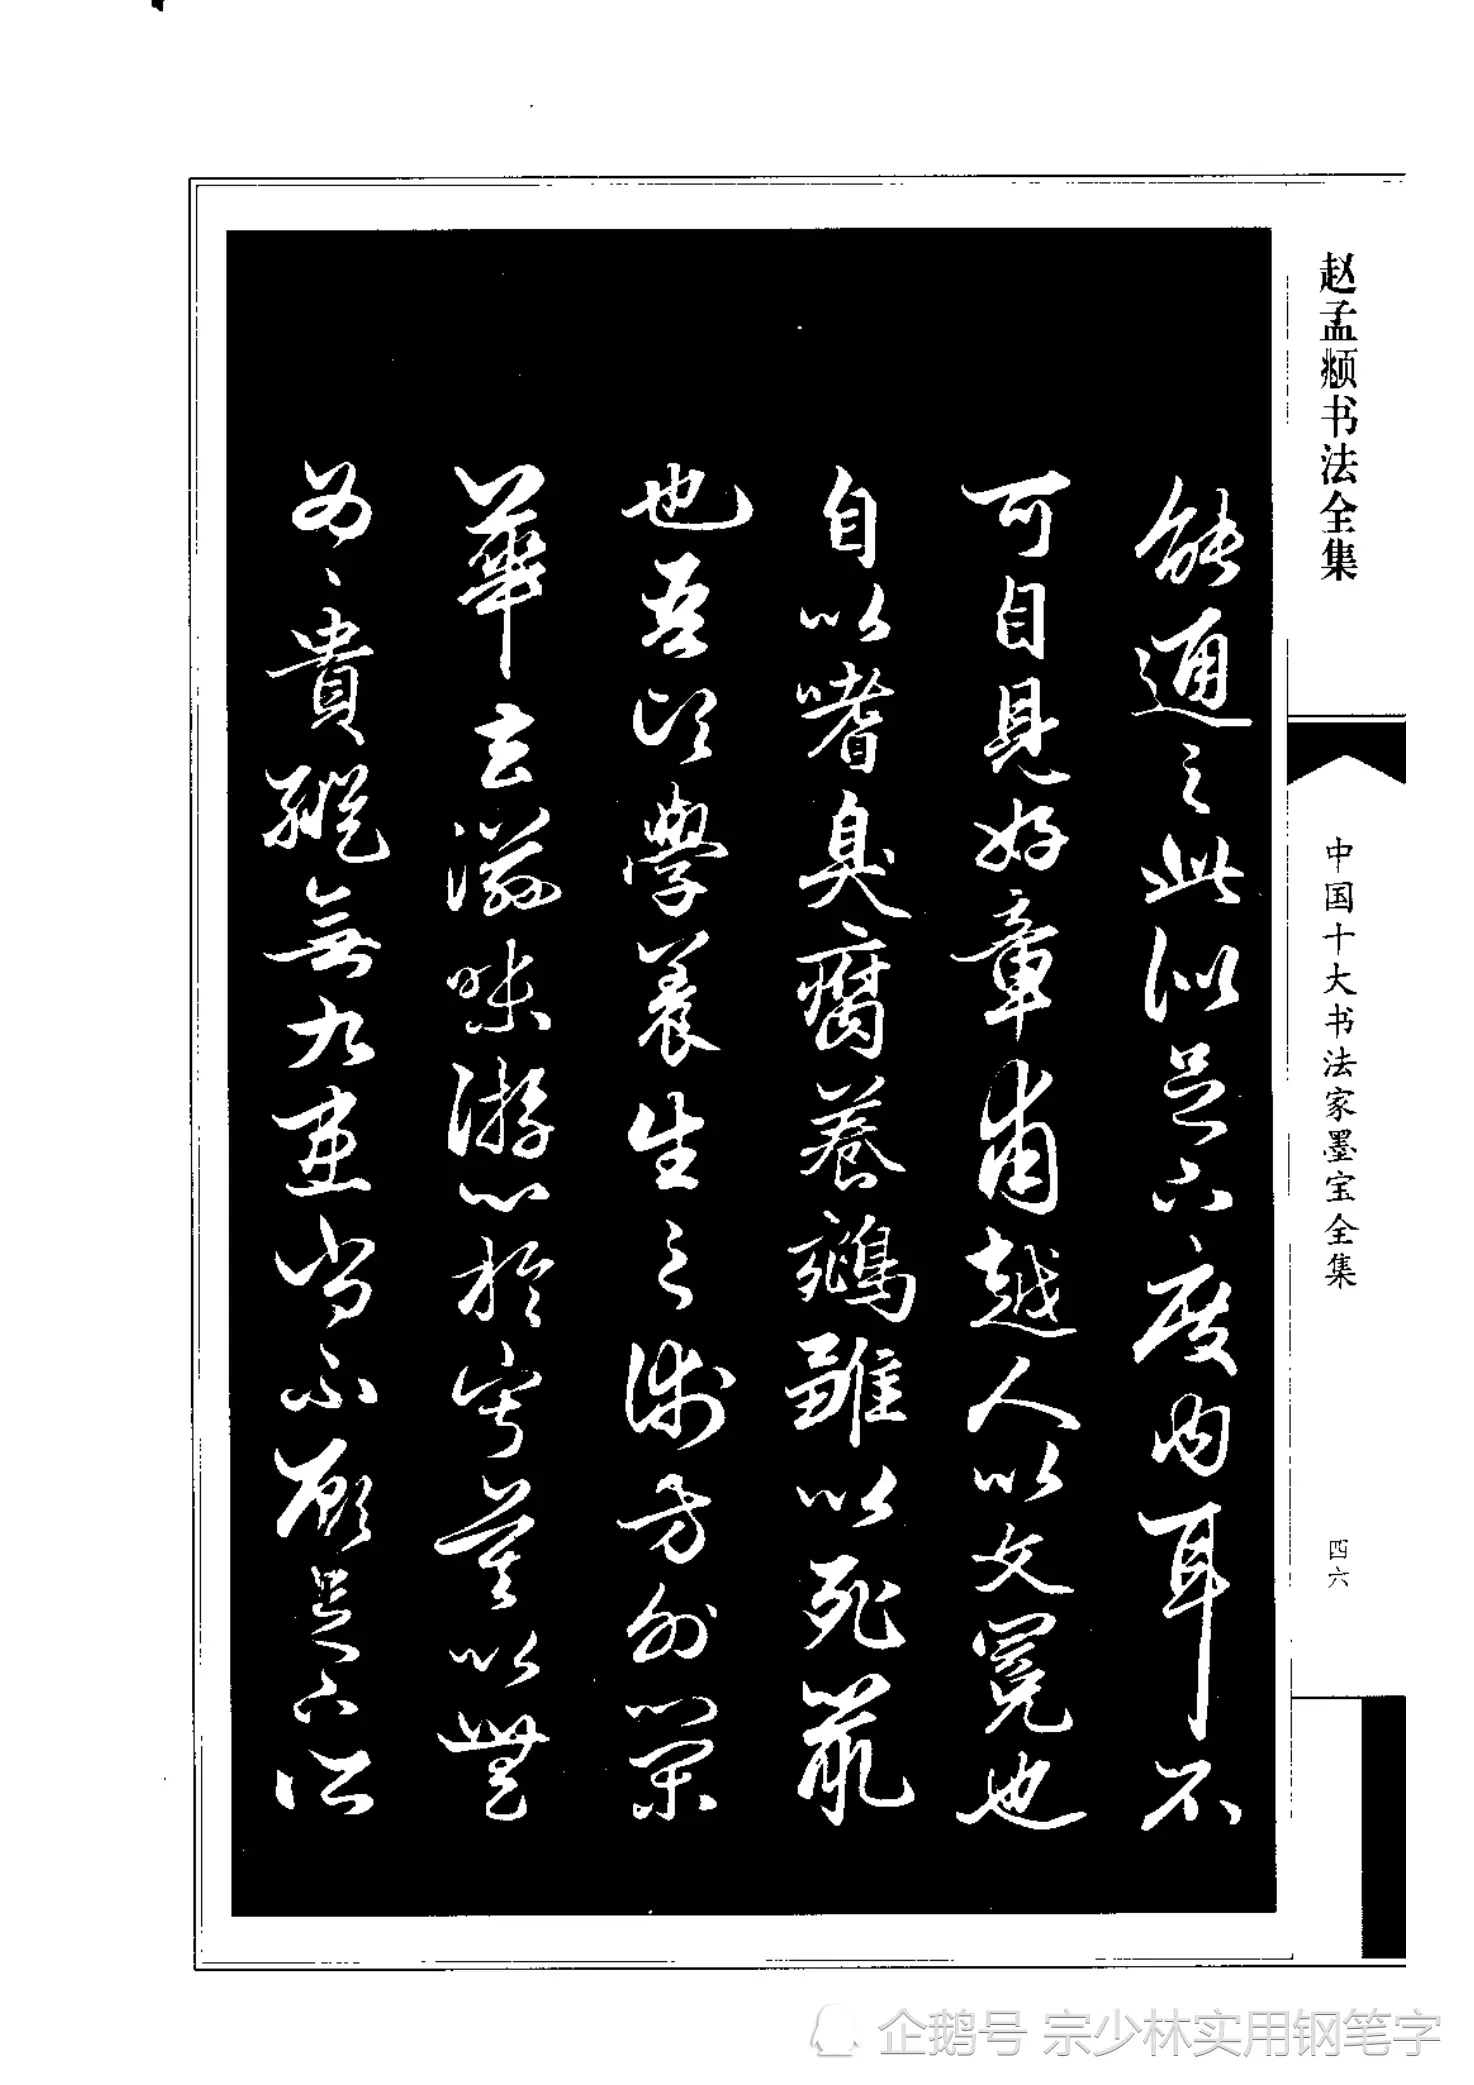 赵孟頫书法全集
中国十大书法家墨宝全集
四六
能通之此似足下度内耳不
可自見好章甫越人以文冕也
自以嗜臭腐養鵷雛以死鼠
也吾頃學養生之術方外榮
華去滋味游心於寂莫以無
為為貴縱無九患尚不顧足下所
企鹅号 宗少林实用钢笔字